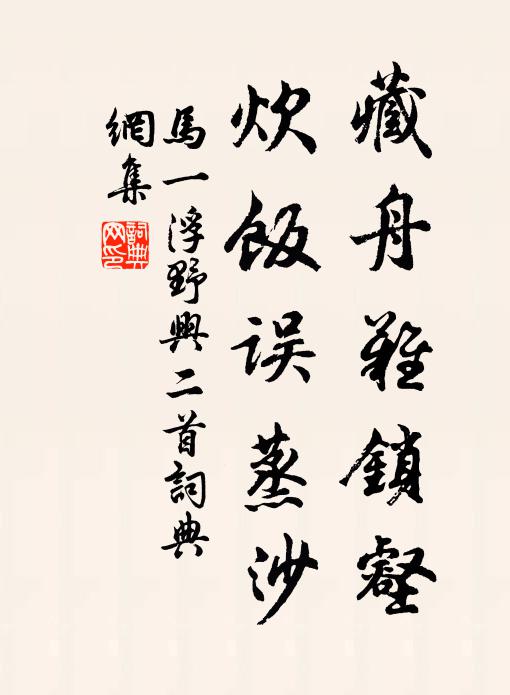 藏舟難鎖壑
炊飯误蒸沙
馬一浮野興二首詞典
網集
詞典网印